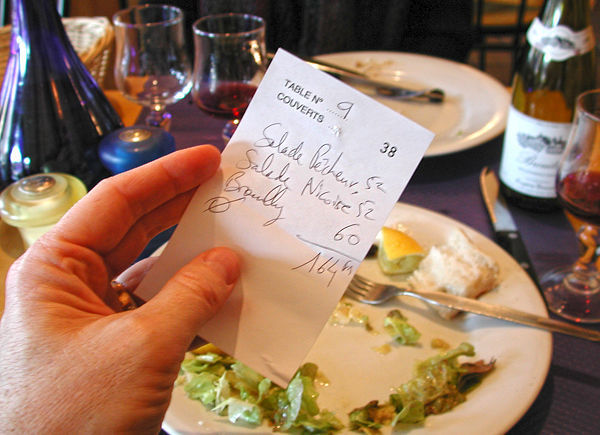 TABLE N° 9
COUVERTS
38
Salade Pêcheur. 52
Salade Niçoise 52
Brouilly 60
164 FF